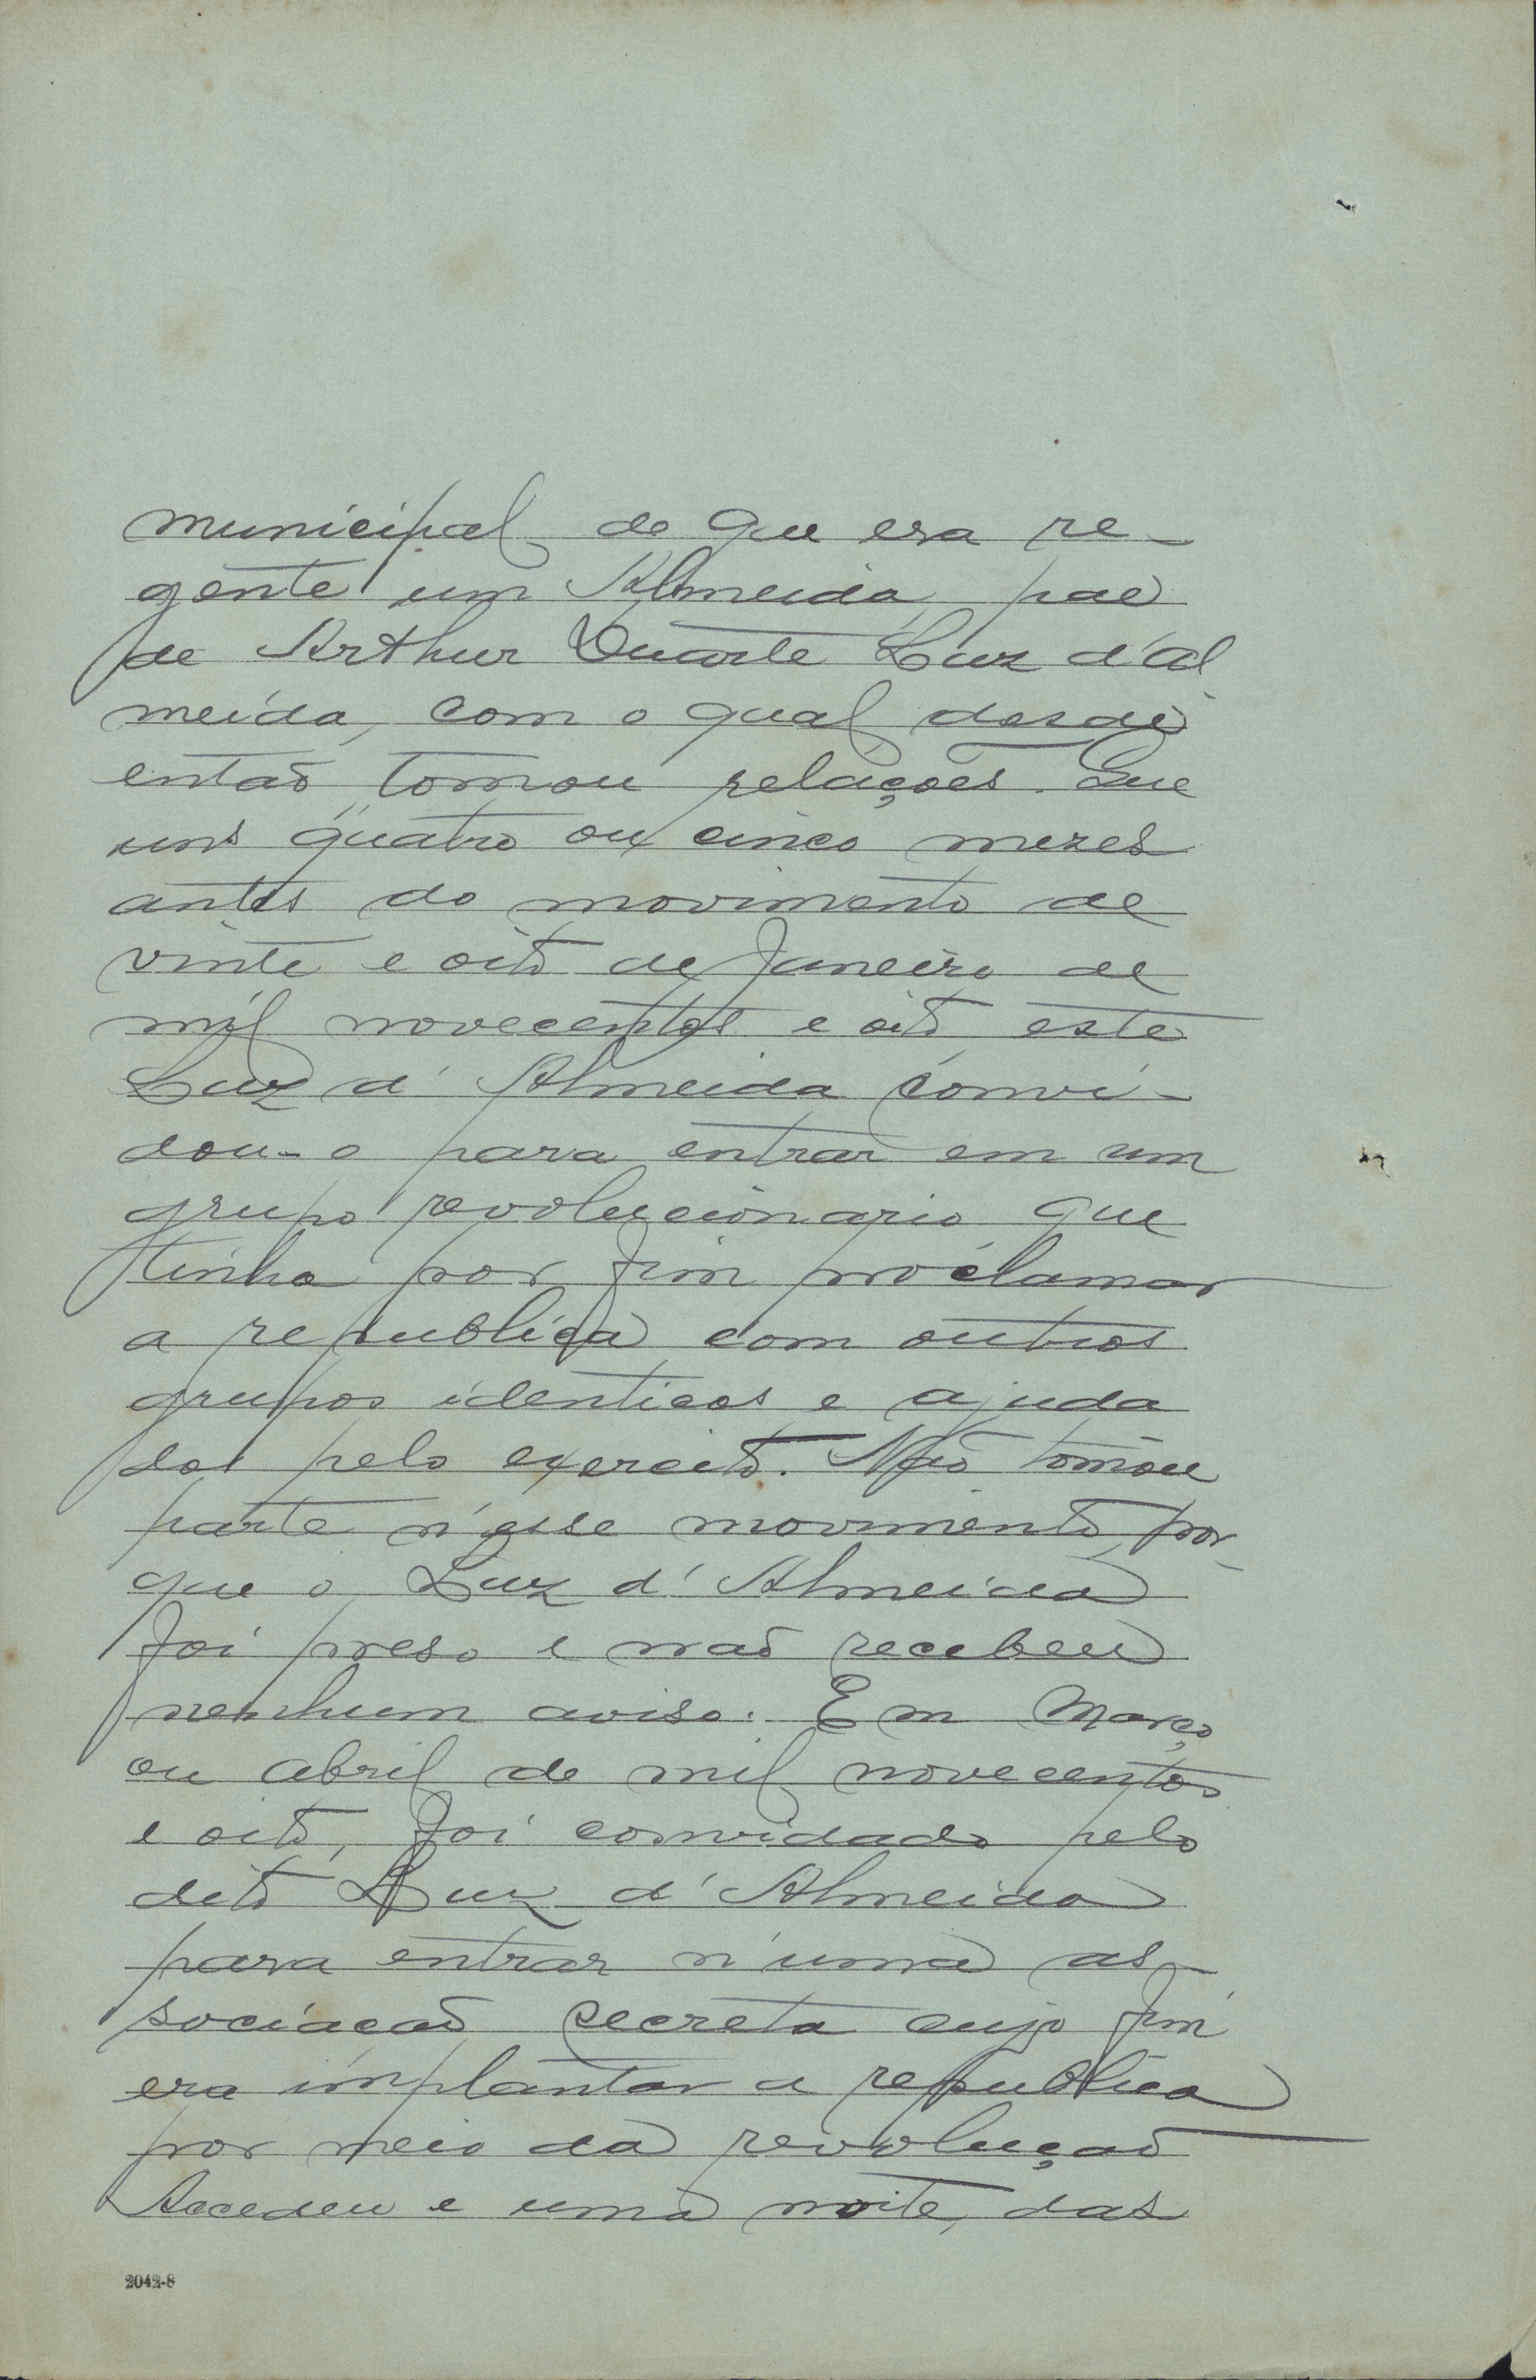 municipal de que era re-
gente um Almeida, pae
de Arthur Duarte Luz d'Al
meida, com o qual desde
então tomou relações. Que
uns quatro ou cinco mezes
antes do movimento de
vinte e oito de Janeiro de
mil novecentos e oito este
Luz d'Almeida convi-
dou-o para entrar em um
grupo revolucionario que
tinha por fim proclamar
a republica com outros
grupos identicos e ajuda
dos pelo exercito. Não tomou
parte n'esse movimento por
que o Luz d'Almeida
foi preso e não recebeu
nenhum aviso. Em Março
ou abril de mil novecentos
e oito, foi convidado pelo
dito Luz d'Almeida
para entrar n'uma as-
sociacão secreta cujo fim
era implantar a republica
por meio da revolução
Accedeu e uma noite, das
2042-8